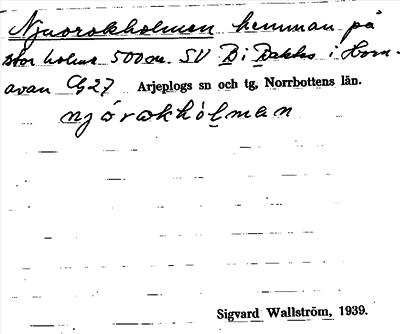 Njuorokholmen hemman på
stor holme 500 m. SV D i Dakks i Horn-
avan G27 Arjeplogs sn och tg, Norrbottens län.
njórokhólman
Sigvard Wallström, 1939.